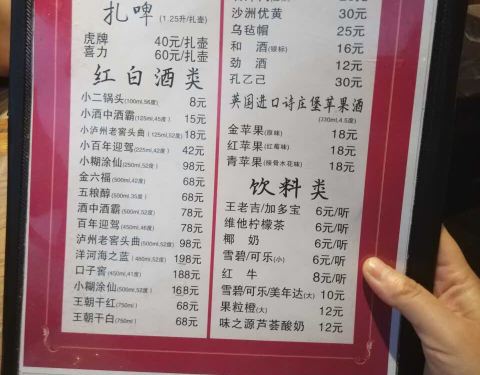 扎啤
(1.25升/扎壶)
虎牌 40元/扎壶
喜力 60元/扎壶
红白酒类
小二锅头(100ml,56度) 8元
小酒中酒霸(125ml,45度) 15元
小泸州老窖头曲(125ml,52度) 18元
小百年迎驾(225ml,42度) 42元
小糊涂仙(250ml,52度) 98元
金六福(500ml,42度) 68元
五粮醇(500ml,35度) 68元
酒中酒霸(500ml,52度) 78元
百年迎驾(450ml,42度) 78元
泸州老窖头曲(500ml,52度) 98元
洋河海之蓝(480ml,52度) 198元
口子窖(450ml,41度) 188元
小糊涂仙(500ml,52度) 168元
王朝干红(750ml) 68元
王朝干白(750ml) 68元
30元
沙洲优黄 30元
乌毡帽 25元
和酒(银标) 16元
劲酒 12元
孔乙己 30元
英国进口诗庄堡苹果酒
(330ml,4.5度)
金苹果(原味) 18元
红苹果(红莓味) 18元
青苹果(接骨木花味) 18元
饮料类
王老吉/加多宝 6元/听
维他柠檬茶 6元/听
椰奶 6元/听
雪碧/可乐(小) 6元/听
红牛 8元/听
雪碧/可乐/美年达(大) 10元
果粒橙(大) 12元
味之源芦荟酸奶 12元